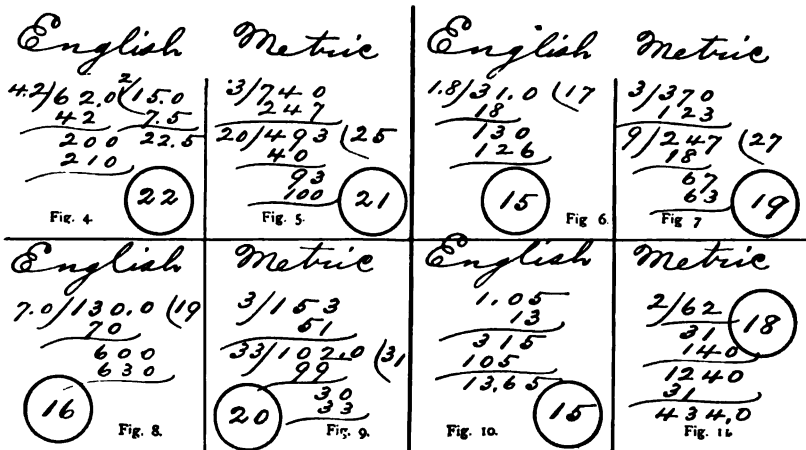 English
4.2/62.0 2(15.0
42 7.5
200 22.5
210
22
Fig. 4
Metric
.3/740
247
20/493 (25
40
93
100
21
Fig. 5.
English
1.8/31.0 (17
18
130
126
15
Fig 6.
Metric
3/370
123
9/247 (27
18
67
63
19
Fig 7
English
7.0/130.0 (19
70
600
630
16
Fig. 8.
Metric
3/153
51
33/102.0 (31
99
30
33
20
Fig. 9.
English
1.05
13
315
105
13.65
15
Fig. 10.
Metric
2/62
31
18
140
1240
31
434.0
Fig. 11